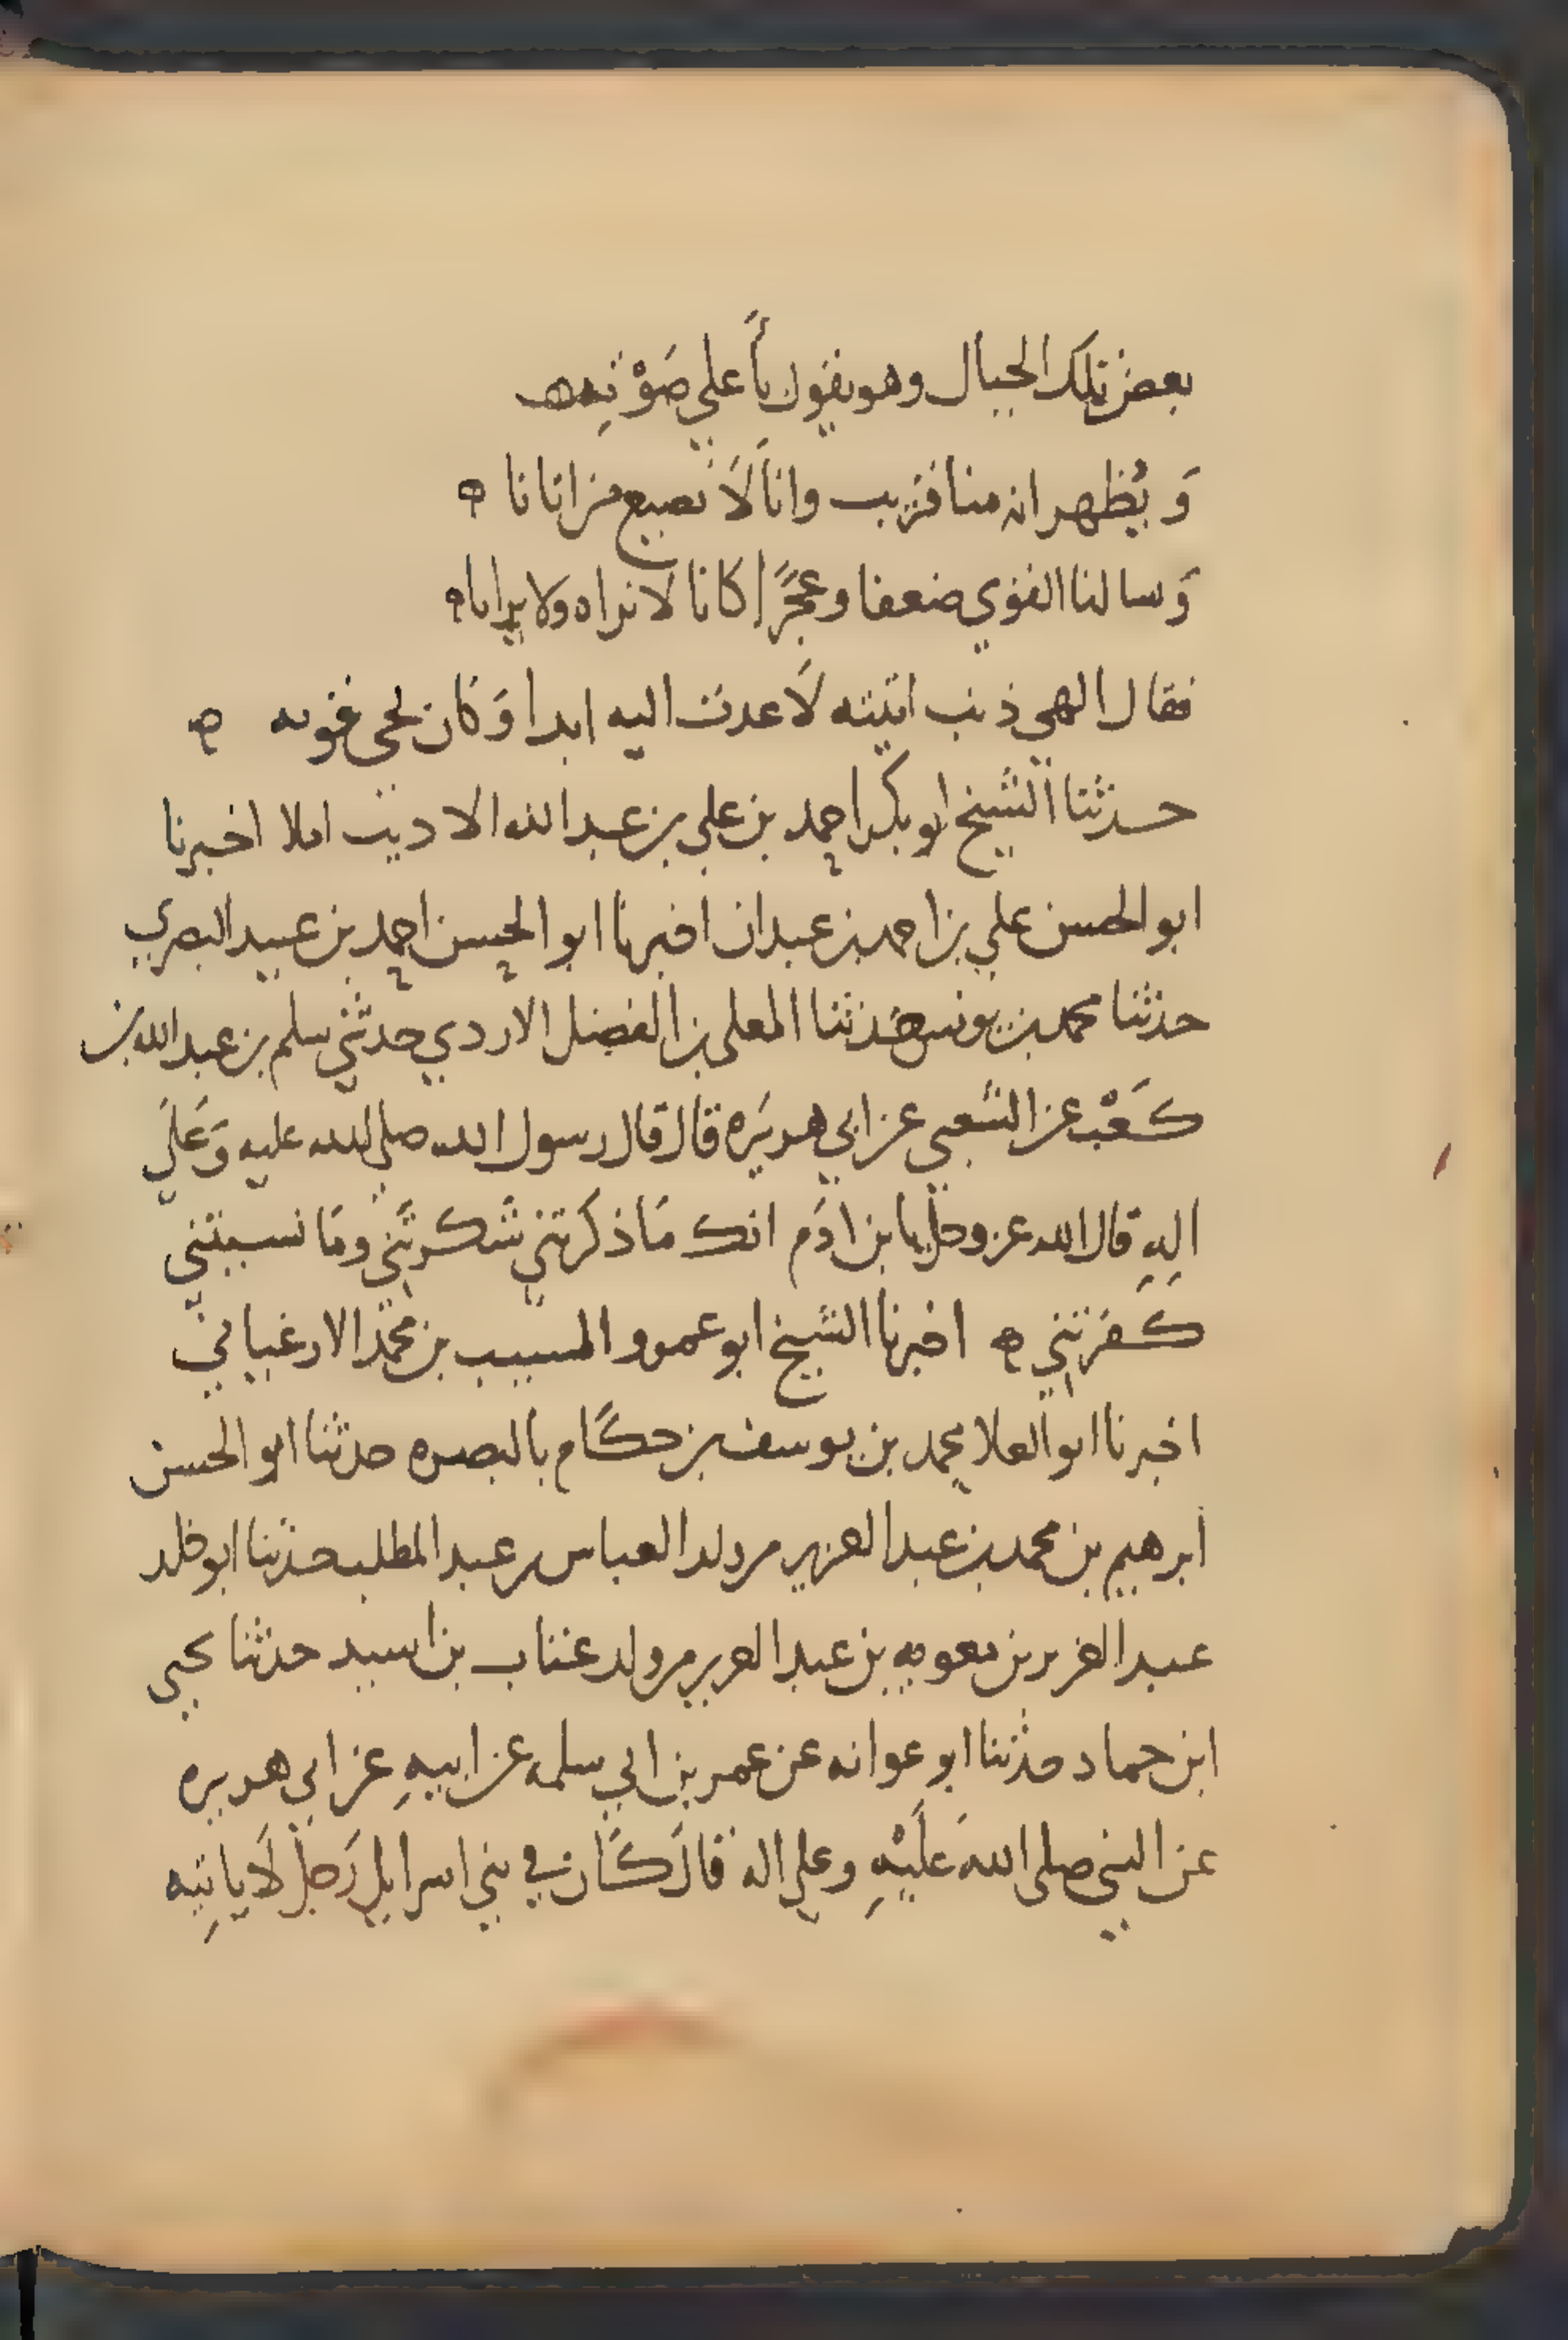 بعض تلك الجبال وهو يقول بأعلي صَوْتِه
وَيُظهر انه منا قريب وانا لَا نضيع من اتانا
وَسالنا القوي ضعفا وعجزًا كانا لا نراه ولا يرانا
فقال الهي ذنب اتيته لَا عدت اليه ابدا وَكان يحيى
حدثنا الشيخ ابو بكر احمد بن علي بن عبد الله الاديب املا اخبرنا
ابو الحسن علي بن احمد بن عبدان اخبرنا ابو الحسن احمد بن عبيد البصري
حدثنا محمد بن يونس حدثنا المعلى بن الفضل الازدي حدثني سلم بن عبد الله بن
كَعْب عن الشعبي عن ابي هريَره قال قال رسول الله صلى الله عليه وَعَلي
الِهِ قال الله عز وجل يا بن ادَم انك مَا ذكرتني شكرتَني ومَا نسيتني
كَفرتني اخبرنا الشيخ ابو عمرو المسيب بن محمد الارغياني
اخبرنا ابو العلا محمد بن يوسف بن حكَّام بالبصره حدثنا ابو الحسن
ابرهيم بن محمد بن عبد العزيز من ولد العباس بن عبد المطلب حدثنا ابو خلد
عبد العزيز بن معويه بن عبد العزيز من ولد عتاب بن اسيد حدثنا يحيى
ابن حماد حدثنا ابو عوانه عن عمر بن ابي سلمه عن ابيهِ عن ابي هريره
عن النبي صلى الله عَلَيْهِ وعلى اله قالَ كَان في بني اسرايل رَجل لَا ياتِيه